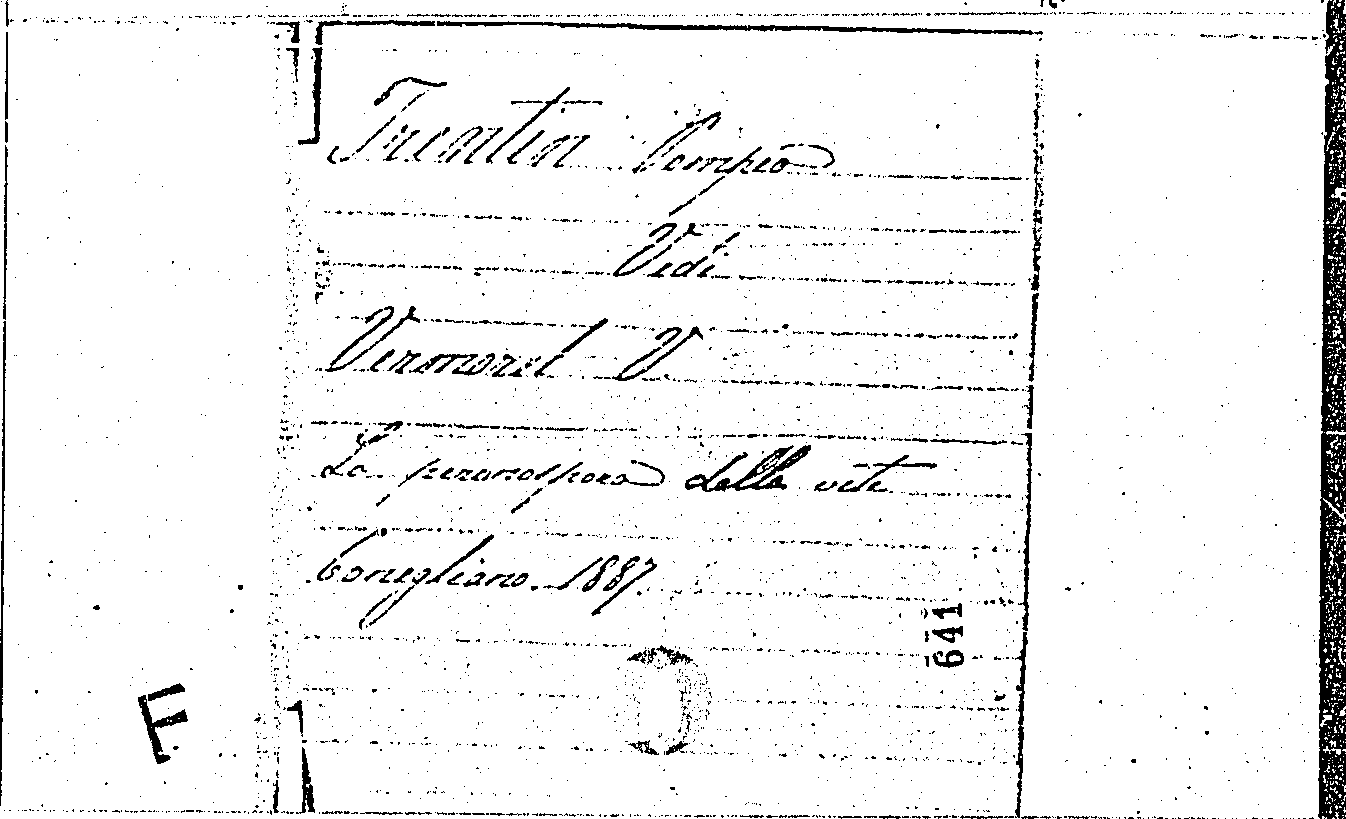 Trentin Pompeo
Vedi
Vermorel V.
La peronospora della vite
Conegliano. 1887.
641
F